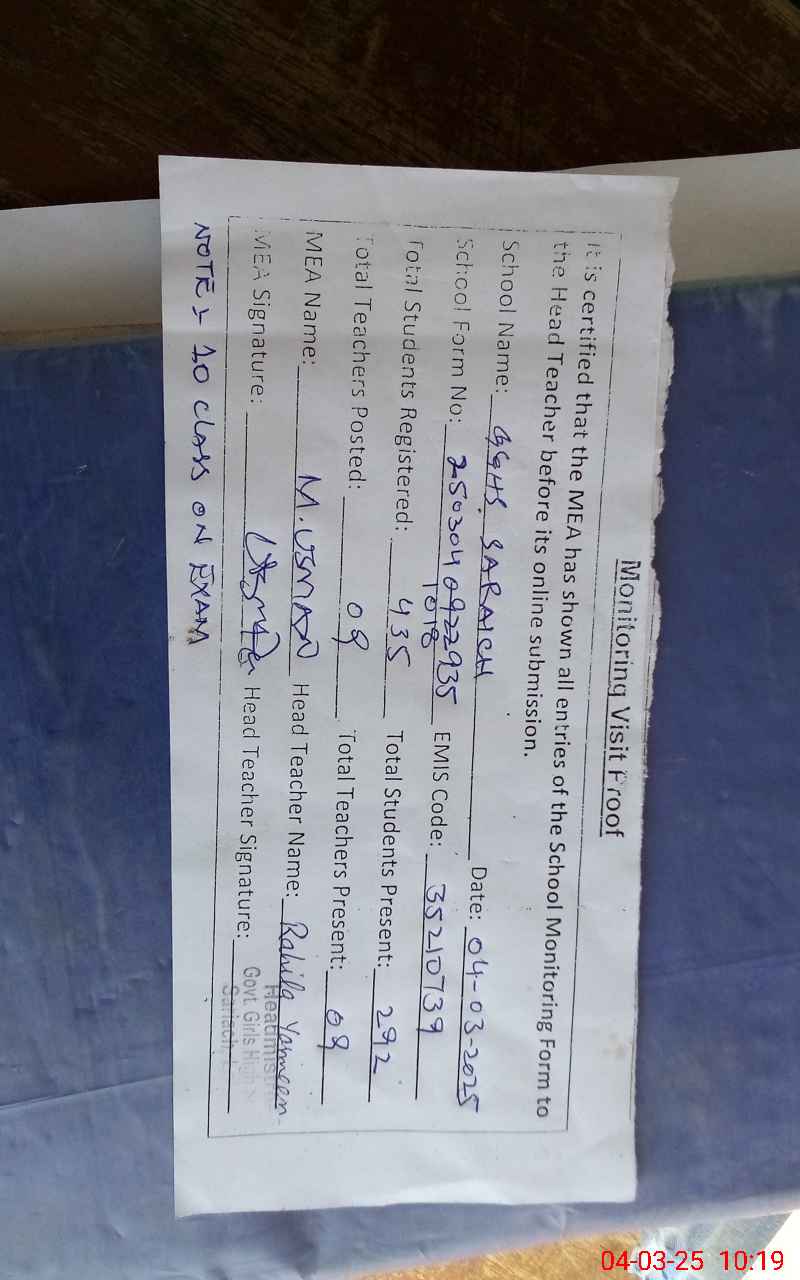 Monitoring Visit Proof
It is certified that the MEA has shown all entries of the School Monitoring Form to
the Head Teacher before its online submission.
School Name: GGHS. SARAICH Date: 04-03-2025
School Form No: 2503040922935 EMIS Code: 35210739
1018
Total Students Registered: 435 Total Students Present: 292
Total Teachers Posted: 09 Total Teachers Present: 09
MEA Name: M. USMAN Head Teacher Name: Rahila Yasmeen
MEA Signature: Head Teacher Signature:
Govt. Girls High
NOTE :- 10 CLASS ON EXAM
04-03-25 10:19